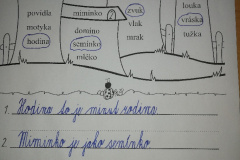 louka
miminko
zvuk
povidla
vráska
motyka
domino
vlak
tužka
hodina
semínko
mrak
mléko
1. Hodina to je minut rodina
2. Miminko je jako semínko